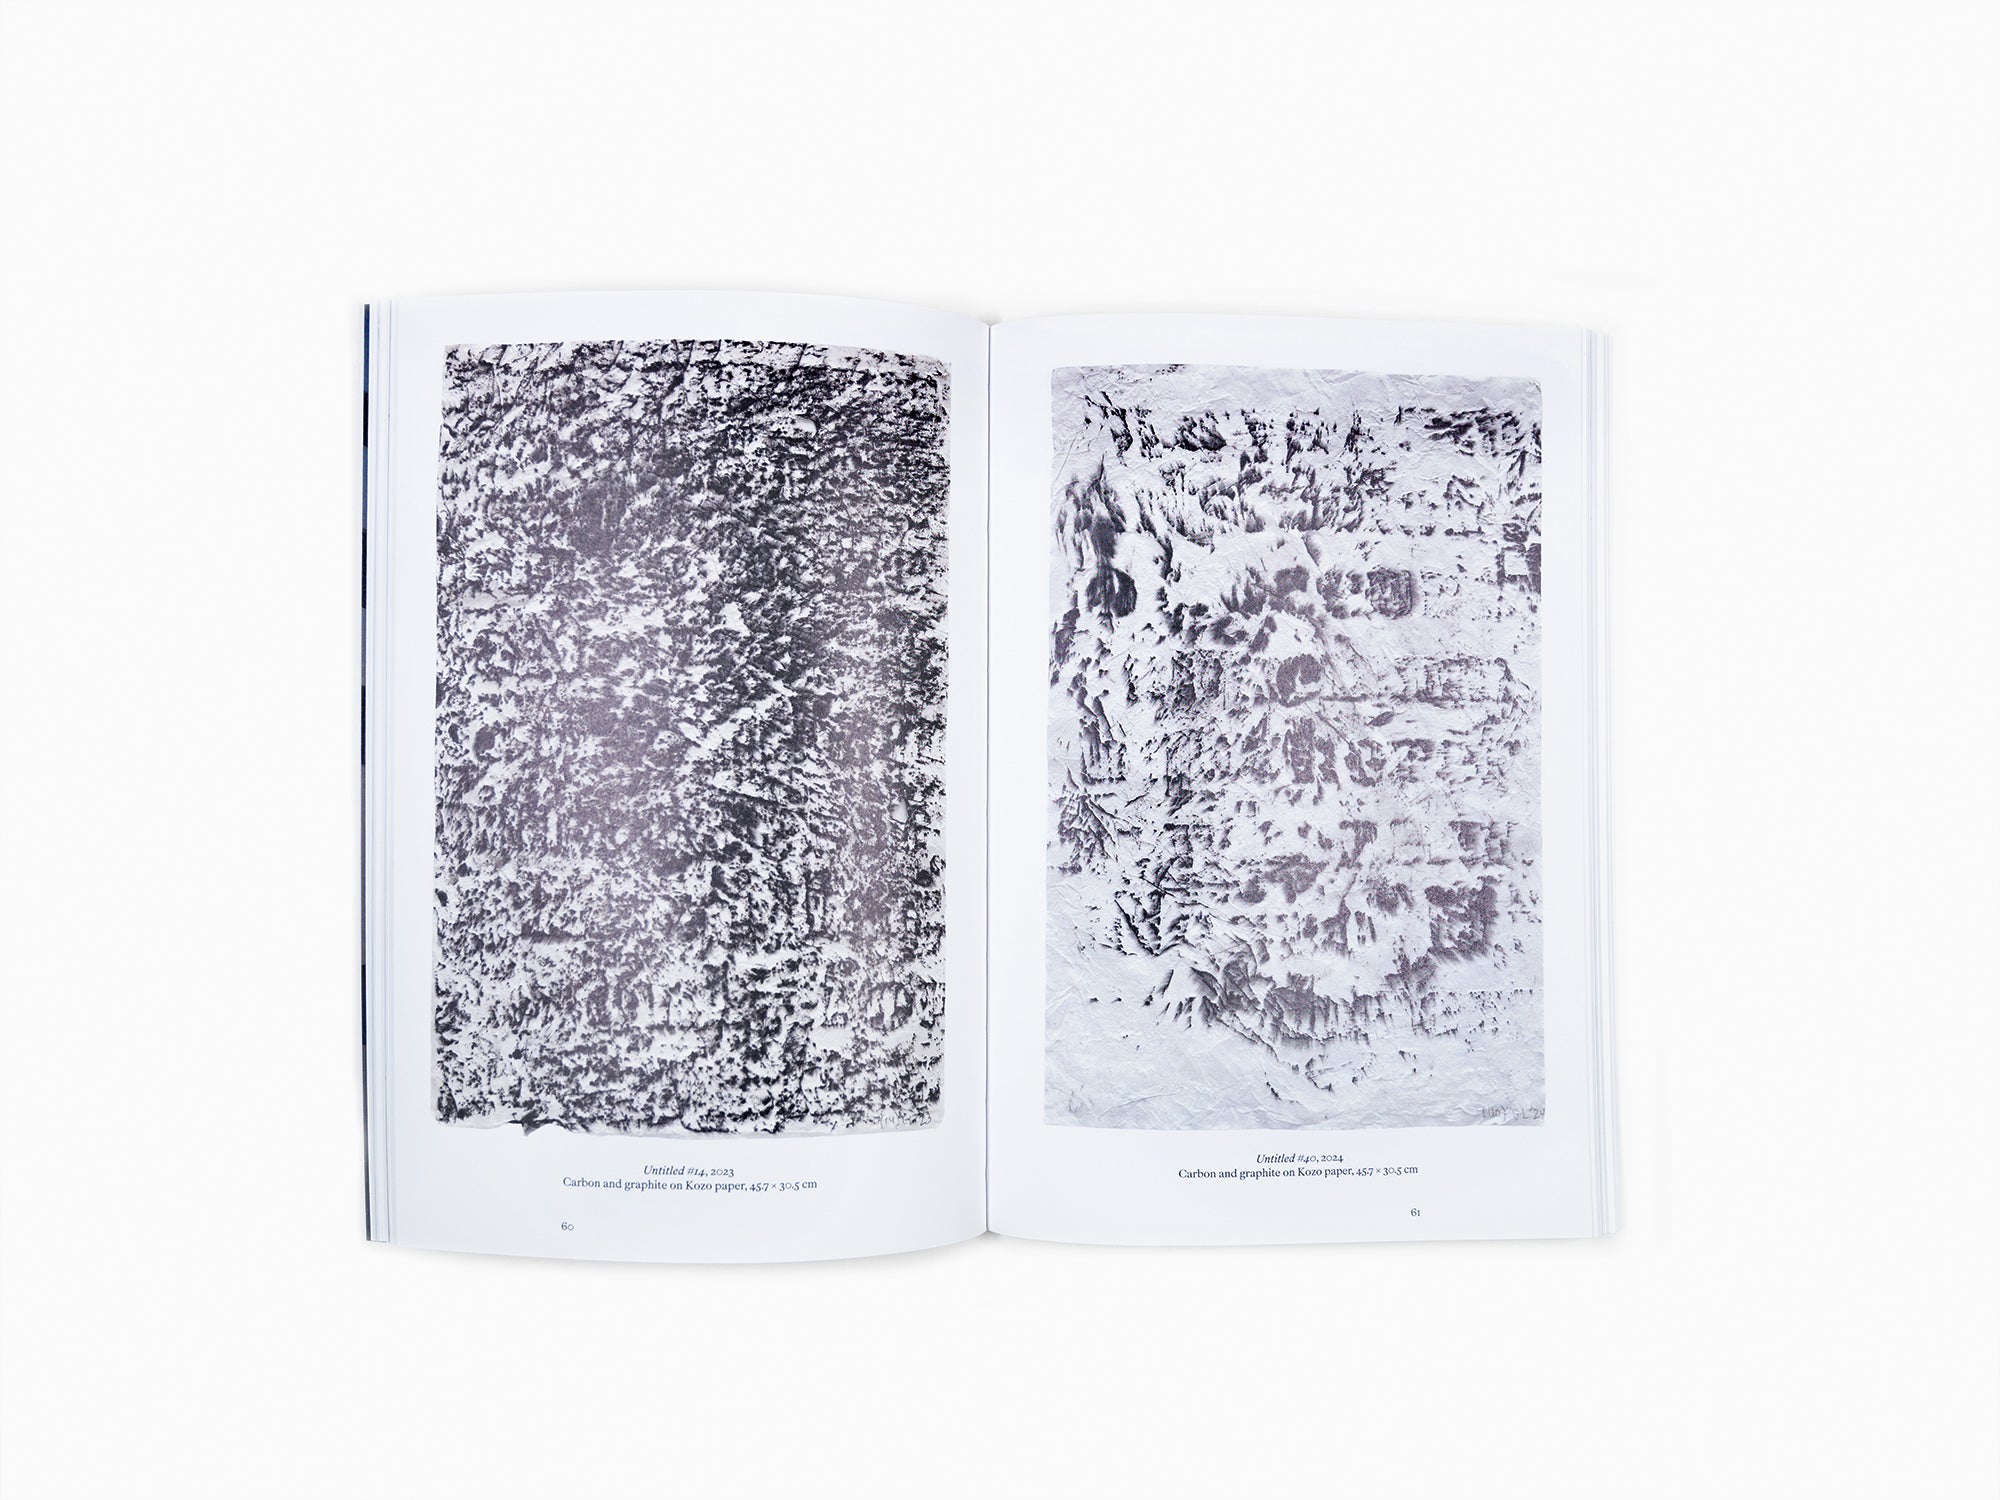 Untitled #14, 2023
Carbon and graphite on Kozo paper, 45.7 × 30.5 cm
60
Untitled #40, 2024
Carbon and graphite on Kozo paper, 45.7 × 30.5 cm
61